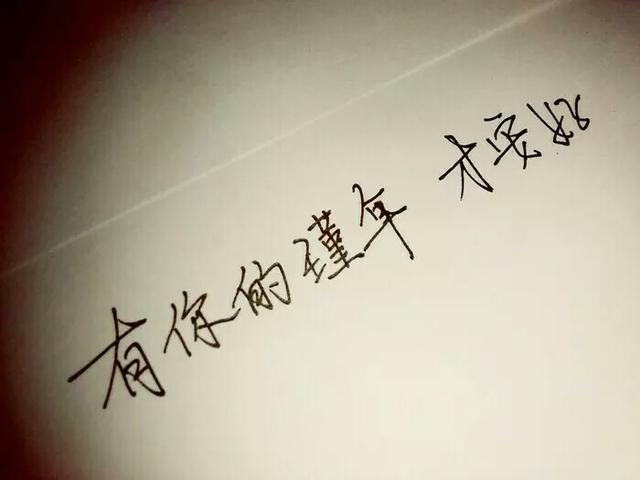 有你的瑾年 才安好